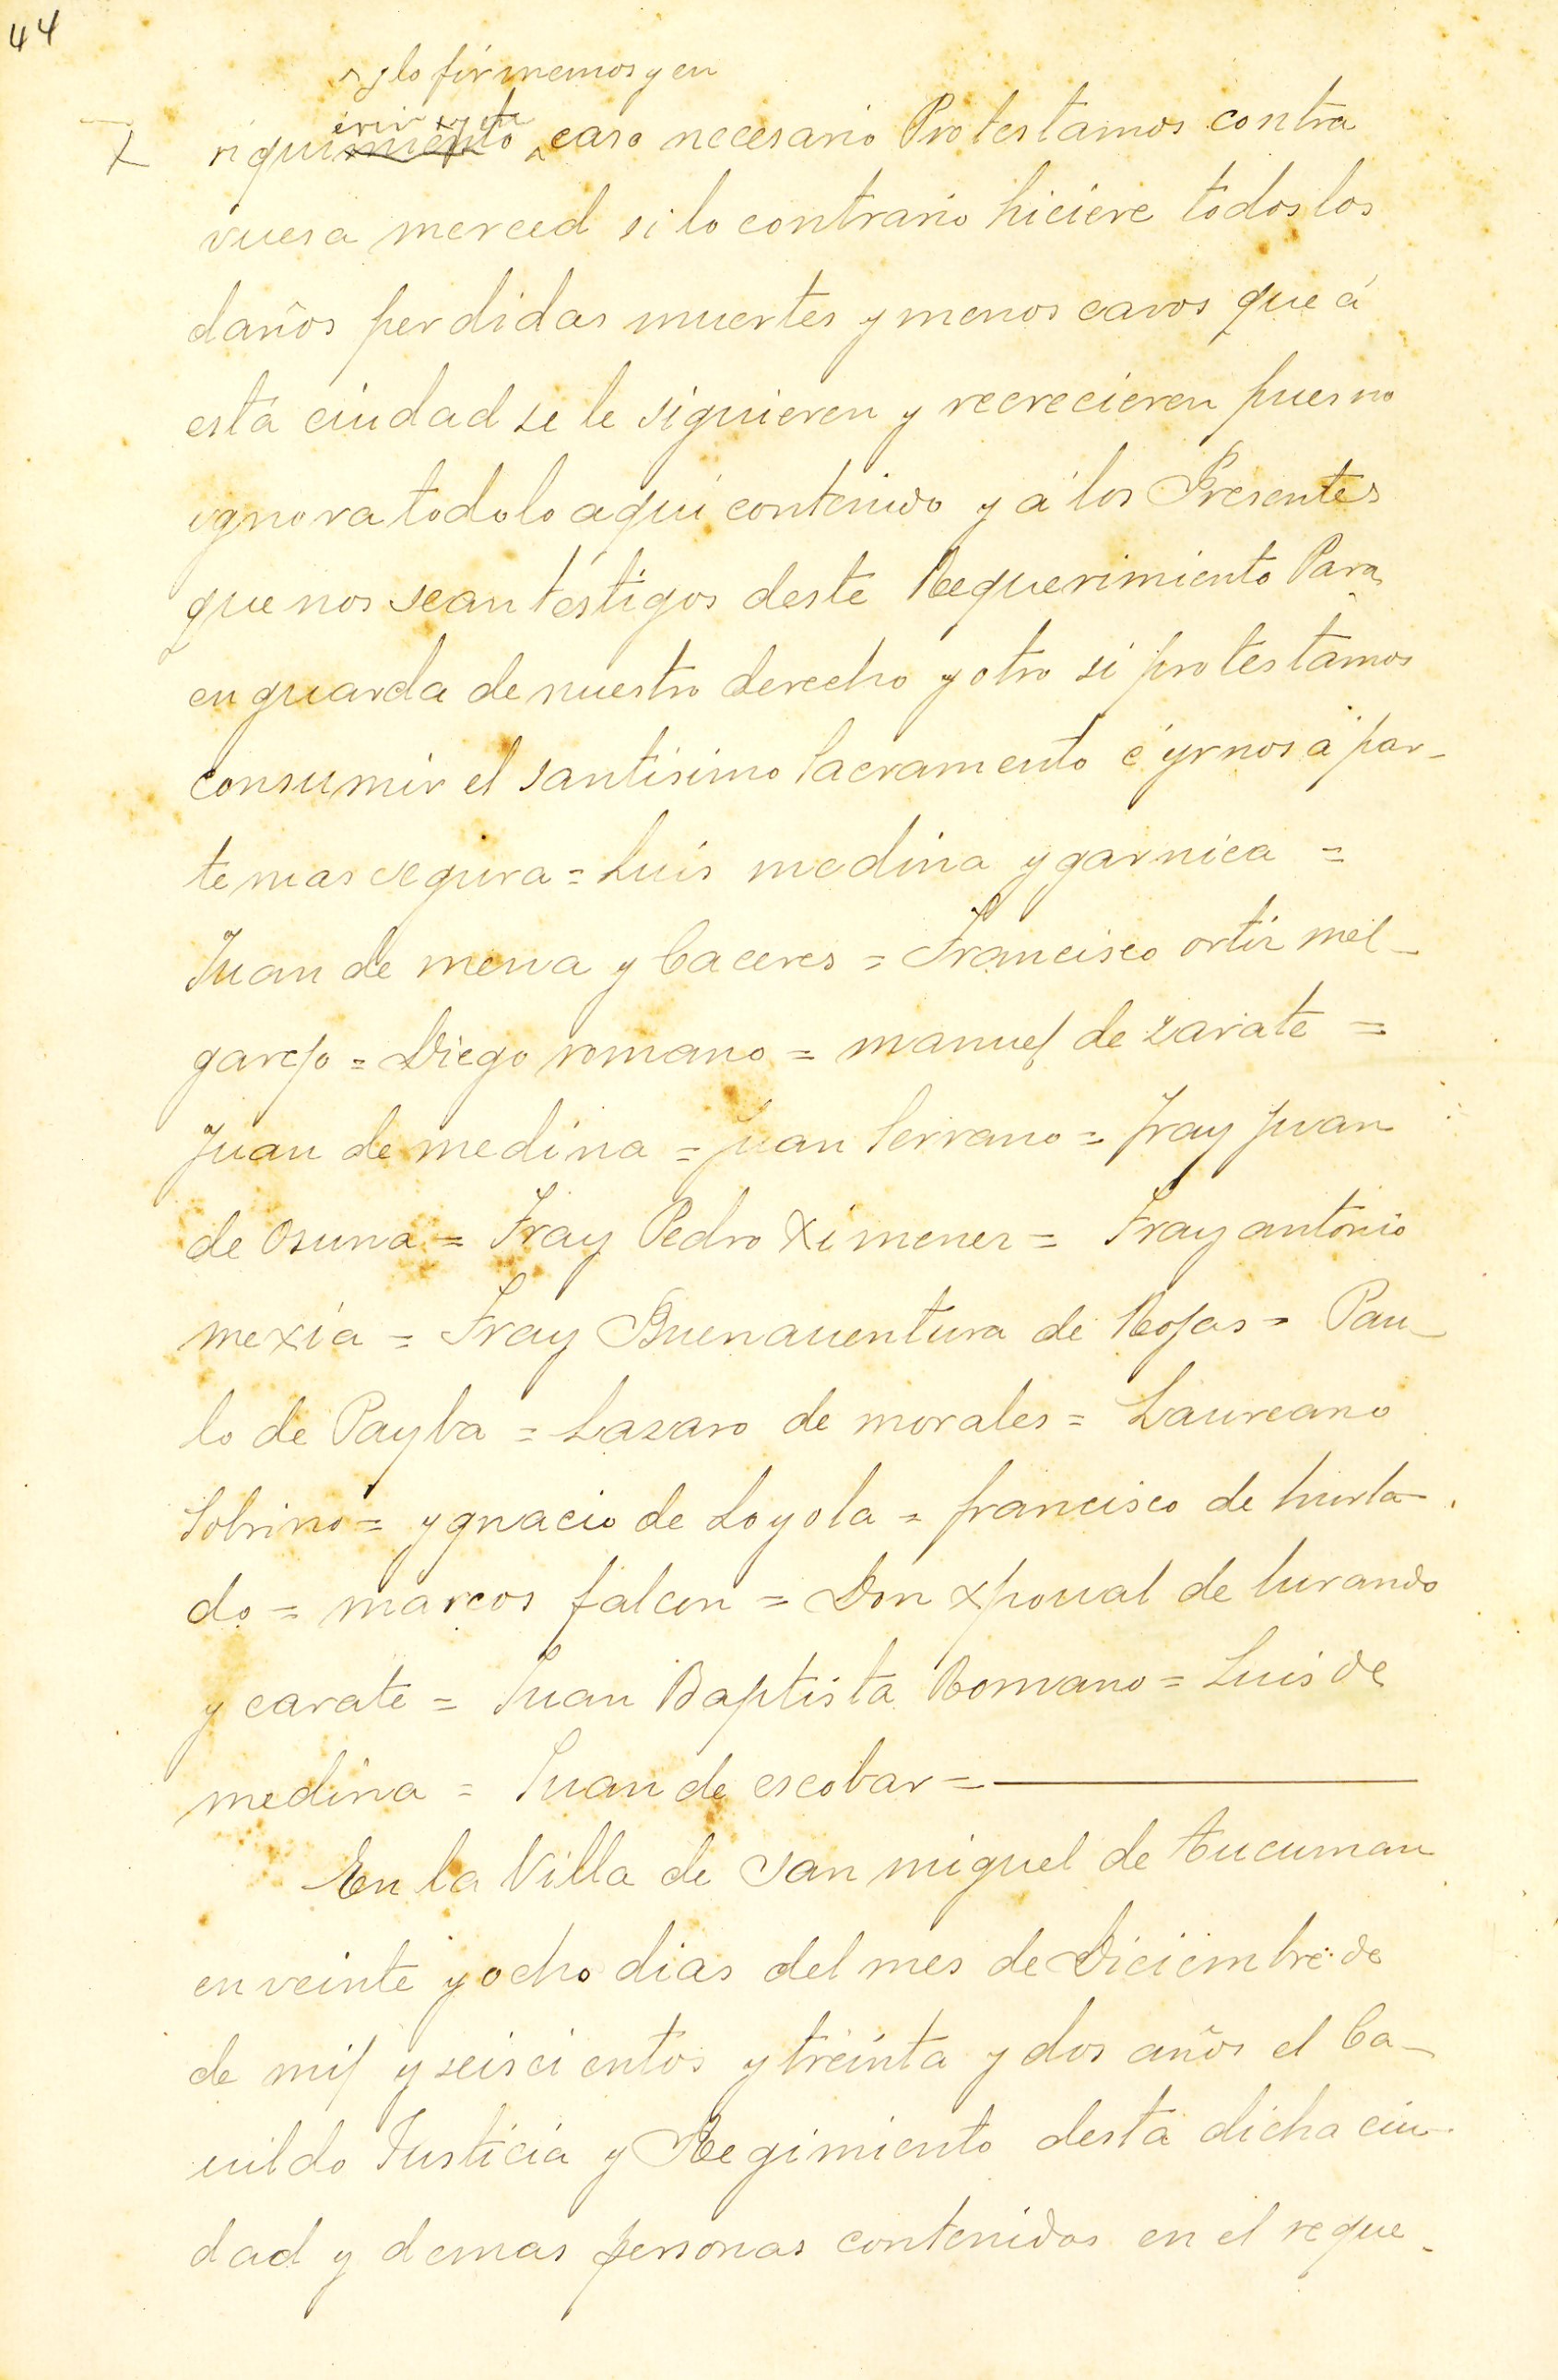 44
y lo firmemos y en
riquimiento caso necesario Protestamos contra
vuesa merced si lo contrario hiciere todos los
daños perdidas muertes y menos cavos que á
esta ciudad se le siguieren y recrecieren pues no
ygnora todo lo aqui contenido y á los Presentes
que nos sean téstigos deste Requerimiento Para
en guarda de nuestro derecho y otro si protestamos
consumir el santisimo Sacramento é yrnos á par-
te mas segura = Luis medina y garnica =
Juan de mena y Caceres = Francisco ortiz mel-
garejo = Diego romano = manuel de zarate =
Juan de medina = juan Serrano = fray juan
de Osuna = Fray Pedro Ximenez = Fray antonio
mexia = Fray Buenauentura de Rojas = Pau-
lo de Payba = Lazaro de morales = Laureano
Sobrino = ygnacio de Loyola = francisco de hurta-
do = marcos falcon = Don xpoual de lurando
y carate = Juan Baptista Romano = Luis de
medina = Juan de escobar =
En la Villa de san miguel de tucuman
en veinte y ocho dias del mes de Diciembre de
de mil y seiscientos y treinta y dos años el Ca-
uildo Justicia y Regimiento desta dicha ciu-
dad y demas personas contenidas en el reque-